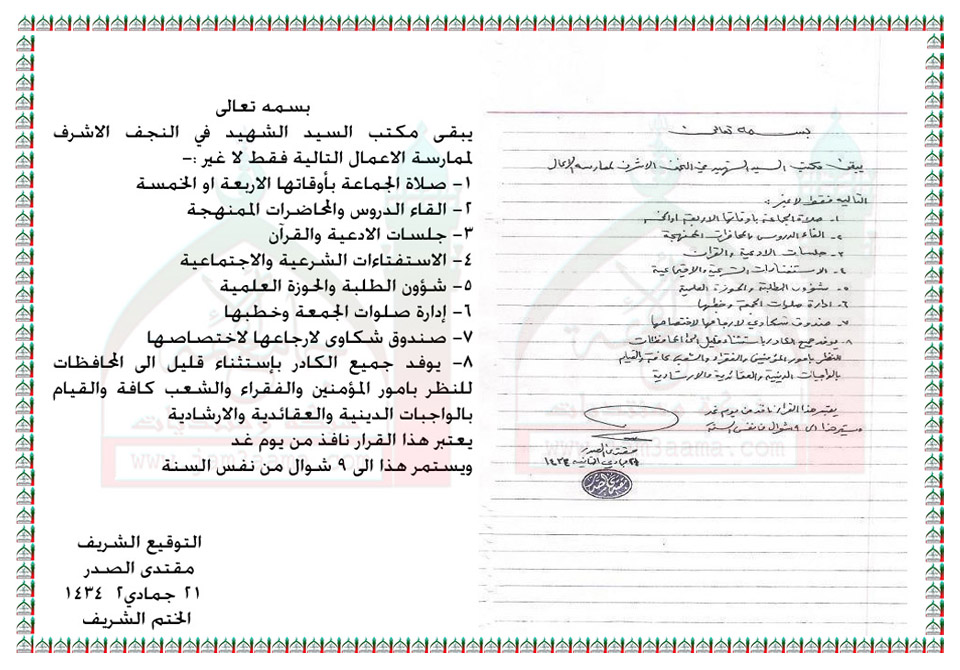 بسمه تعالى
يبقى مكتب السيد الشهيد في النجف الاشرف لممارسة الاعمال
التالية فقط لا غير :-
١- صلاة الجماعة بأوقاتها الاربعة او الخمسة
٢- القاء الدروس والمحاضرات الممنهجة
٣- جلسات الادعية والقرآن
٤- الاستفتاءات الشرعية والاجتماعية
٥- شؤون الطلبة والحوزة العلمية
٦- ادارة صلوات الجمعة وخطبها
٧- صندوق شكاوي لارجاعها لاختصاصها
٨- يوفد جميع الكادر باستثناء قليل الى المحافظات
للنظر بامور المؤمنين والفقراء والشعب كافة والقيام
بالواجبات الدينية والعقائدية والارشادية
يعتبر هذا القرار نافذ من يوم غد
ويستمر هذا الى ٩ شوال من نفس السنة
مقتدى الصدر
جمادي الثانية ١٤٣٤
بسمه تعالى
يبقى مكتب السيد الشهيد في النجف الاشرف
لممارسة الاعمال التالية فقط لا غير :-
١- صلاة الجماعة بأوقاتها الاربعة او الخمسة
٢- القاء الدروس والمحاضرات الممنهجة
٣- جلسات الادعية والقرآن
٤- الاستفتاءات الشرعية والاجتماعية
٥- شؤون الطلبة والحوزة العلمية
٦- إدارة صلوات الجمعة وخطبها
٧- صندوق شكاوى لارجاعها لاختصاصها
٨- يوفد جميع الكادر بإستثناء قليل الى المحافظات
للنظر بامور المؤمنين والفقراء والشعب كافة والقيام
بالواجبات الدينية والعقائدية والارشادية
يعتبر هذا القرار نافذ من يوم غد
ويستمر هذا الى ٩ شوال من نفس السنة
التوقيع الشريف
مقتدى الصدر
٢١ جمادي٢ ١٤٣٤
الختم الشريف
www.jam3aama.com
www.jam3aama.com